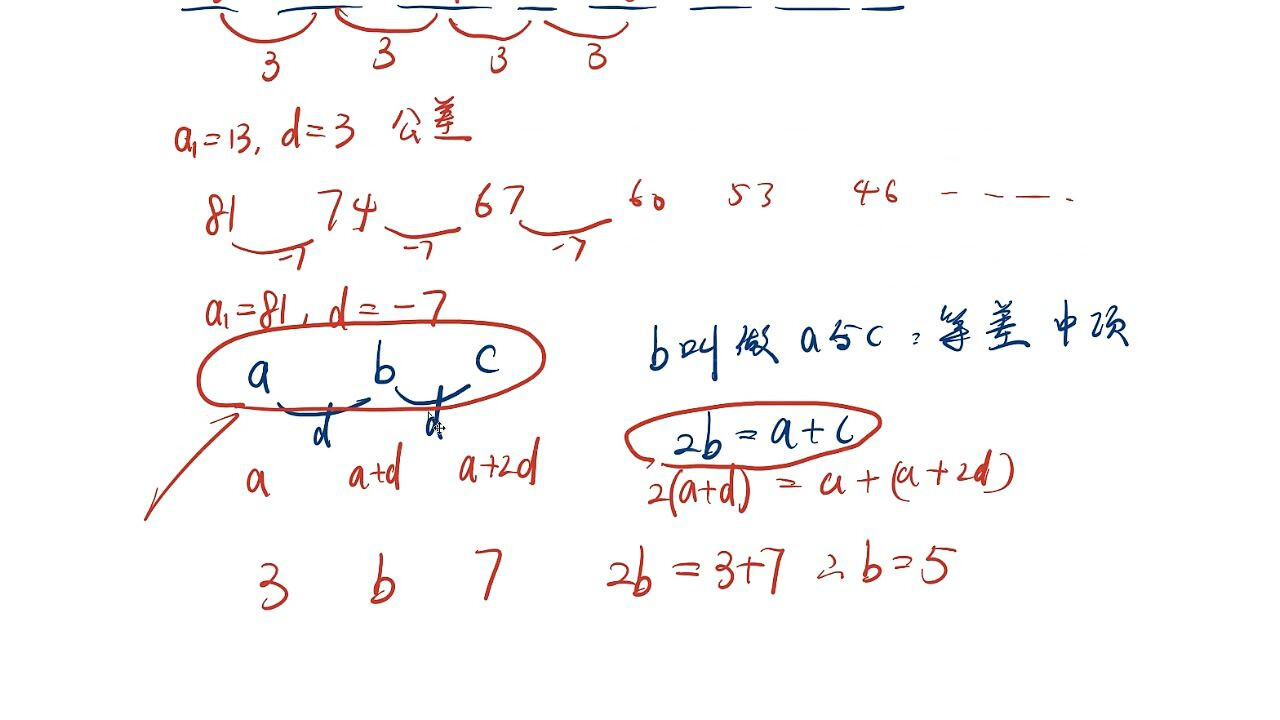 3 3 3 3
a₁=13, d=3 公差
81 74 67 60 53 46 - - - — .
-7 -7 -7
a₁=81, d=-7
a b c
b叫做 a与c 等差中项
d d
2b=a+c
a a+d a+2d
2(a+d) = a+(a+2d)
3 b 7 2b=3+7 ∴b=5